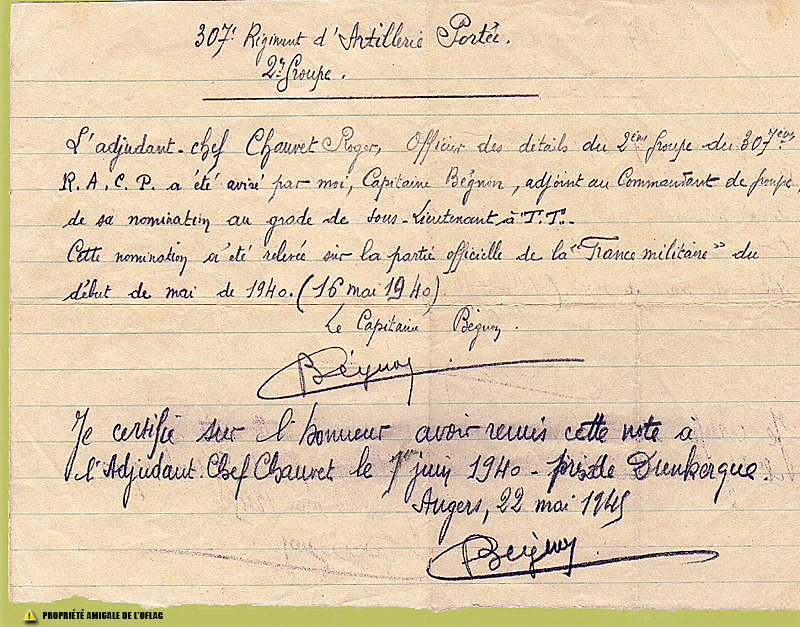 307e Régiment d'Artillerie Portée.
2e Groupe.
L'adjudant-chef Chauvet Roger, Officier des détails du 2ème Groupe du 307ème
R.A.C.P. a été avisé par moi, Capitaine Bégnon, adjoint au Commandant de groupe
de sa nomination au grade de sous-Lieutenant à T.T.
Cette nomination a été relevée sur la partie officielle de la "France militaire" du
début de mai de 1940. (16 mai 1940)
Le Capitaine
Je certifie sur l'honneur avoir remis cette note à
l'Adjudant.Chef Chauvet le 1er juin 1940 - près de Dunkerque.
Angers, 22 mai 1945
PROPRIÉTÉ AMIGALE DE L'OFLAG